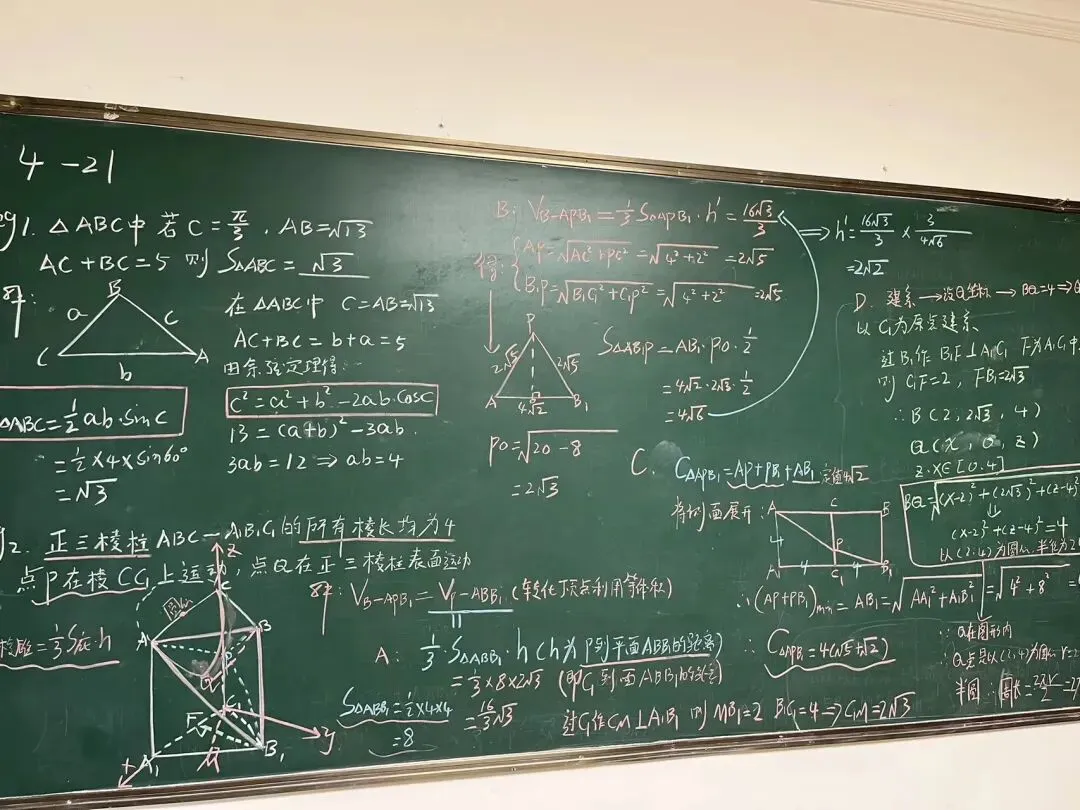 4-21
eg1. △ABC中若C=π/3, AB=√13
AC+BC=5 则 S△ABC=√3
解:
B
a
c
C
A
b
在△ABC中 C=AB=√13
AC+BC=b+a=5
由余弦定理得:
c²=a²+b²-2ab·cosC
13=(a+b)²-3ab.
3ab=12⇒ab=4
△ABC=½ab·sinC
=½×4×sin60°
=√3
2. 正三棱柱ABC-A₁B₁C₁的所有棱长均为4
点P在棱CC₁上运动, 点Q在正三棱柱表面运动
=⅓S底·h
z
C
A
B
F
A₁
B₁
y
解: V_B-APB₁=V_P-ABB₁(转化顶点利用等体积)
A: ⅓·S△ABB₁·h(h为P到平面ABB₁的距离)
=⅓×8×2√3 (即C₁到面ABB₁的距离)
=16/3√3
S△ABB₁=½×4×4
=8
过C₁作C₁M⊥A₁B₁ 则MB₁=2 B₁C₁=4⇒C₁M=2√3
B. V_B-APB₁=⅓S△APB₁·h'=16√3/3
⇒h'=16√3/3×3/4√6
=2√2
得: AP=√AC²+PC²=√4²+2²=2√5
B₁P=√B₁C₁²+C₁P²=√4²+2²=2√5
P
2√5
2√5
A
4√2
B₁
PO=√20-8
=2√3
S△AB₁P=AB₁·PO·½
=4√2·2√3·½
=4√6
C. C△APB₁=AP+PB₁+AB₁ 定值4√2
将侧面展开:
A
C
B
4
P
A₁
4
C₁
4
B₁
∴(AP+PB₁)min=AB₁=√AA₁²+A₁B₁²=√4²+8²=
∴C△APB₁=4(√5+√2)
D. 建系→设Q坐标→BQ=4⇒
以C₁为原点建系
过B₁作B₁F⊥A₁C₁ F为A₁C₁中
则C₁F=2, FB₁=2√3
∴B(2,2√3,4)
Q(x,0,z)
z.x∈[0.4]
BQ=√(x-2)²+(2√3)²+(z-4)²
(x-2)²+(z-4)²=4
以(2,4)为圆心,半径为2
∵Q在图形内
∴Q点是以(2,4)为圆心 r=2
半圆 ∴周长=